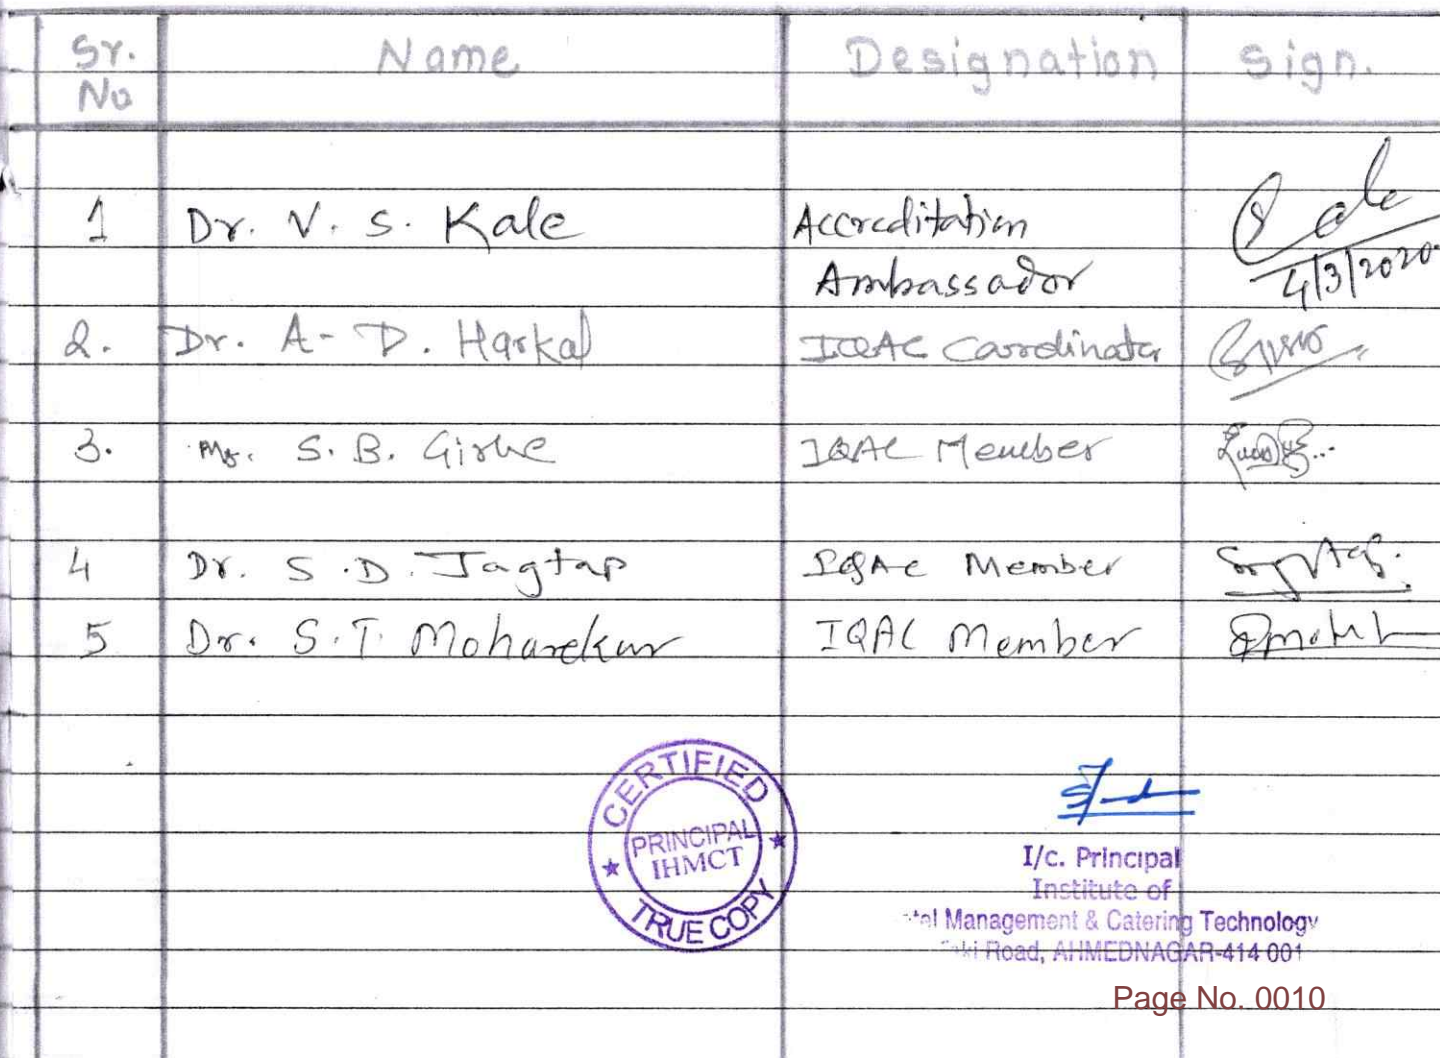 Sr. No Name Designation Sign.
1 Dr. V. S. Kale Accreditation Ambassador
4/3/2020.
2. Dr. A- D. Harkal IQAC Coordinator
3. Mr. S. B. Girhe IQAC Member
4 Dr. S.D. Jagtap IQAC Member
5 Dr. S.T. Moharekar IQAC Member
CERTIFIED
PRINCIPAL
IHMCT
TRUE COPY
I/c. Principal
Institute of
Management & Catering Technology
Road, AHMEDNAGAR-414 001
Page No. 0010